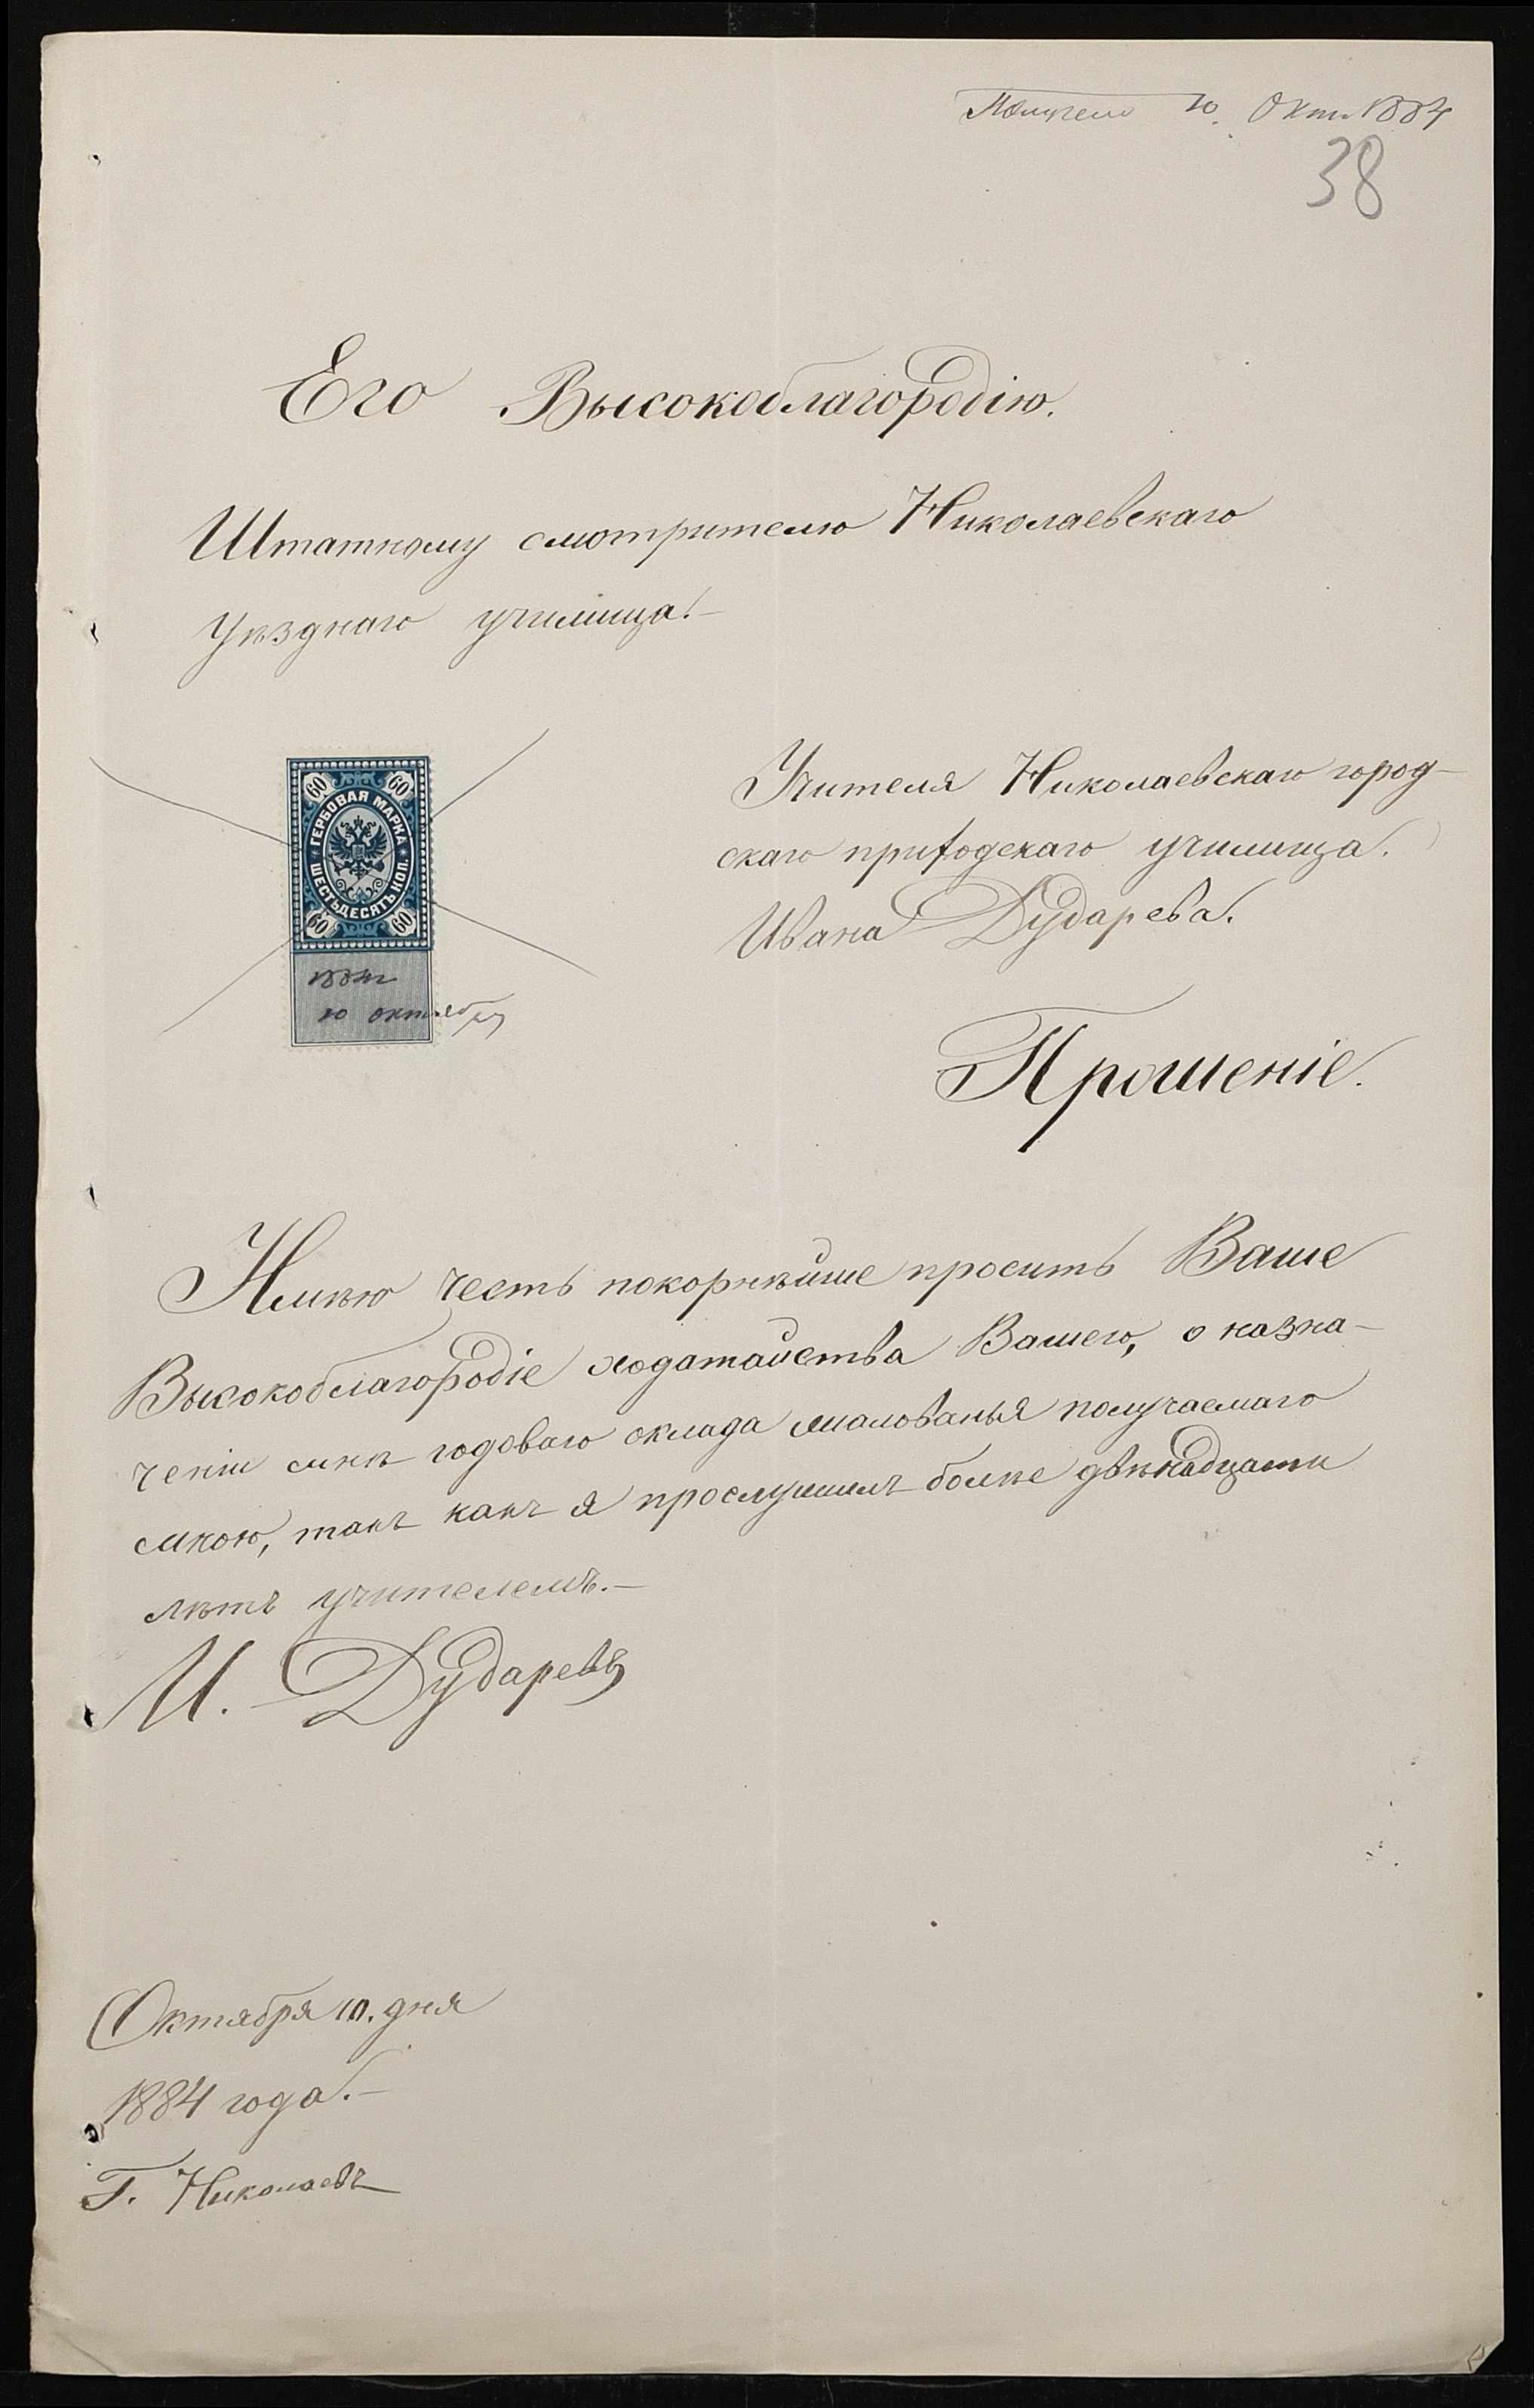 Получено 10 Окт. 1884
38
Его Высокоблагородію.
Штатному смотрителю Николаевскаго
Уѣзднаго училища.—
60 60
ГЕРБОВАЯ МАРКА
ШЕСТЬДЕСЯТЪ КОП.
60 60
1884
10 октября
Учителя Николаевскаго город-
скаго приходскаго училища.
Ивана Дударева.
Прошеніе.
Имѣю честь покорнѣйше просить Ваше
Высокоблагородіе ходатайства Вашего, о назна-
ченіи мнѣ годоваго оклада жалованья получаемаго
мною, такъ какъ я прослужилъ болѣе двѣнадцати
лѣтъ учителемъ.—
И. Дударевъ
Октября 10. дня
1884 года.—
Г. Николаевъ